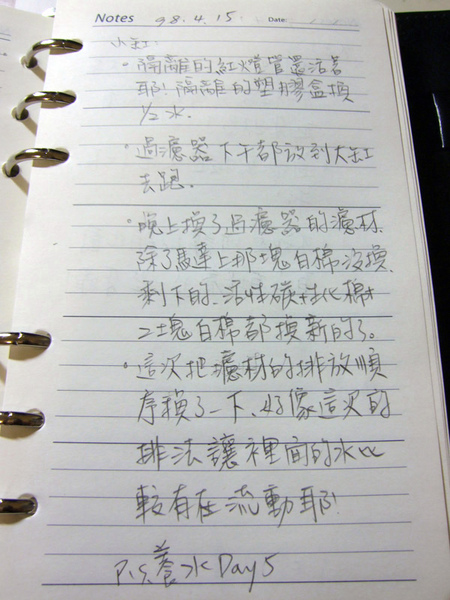 Notes 98.4.15 Date:
小缸:
·隔離的紅燈管還活著
耶!隔離的塑膠盒換
1/2水.
·過濾器下午都放到大缸
去跑.
·晚上換了過濾器的濾材.
除了馬達上那塊白棉沒換.
剩下的.活性碳+生化棉+
二塊白棉都換新的了。
·這次把濾材的排放順
序換了一下、好像這次的
排法讓裡面的水比
較有在流動耶!
P.S.養水Day5